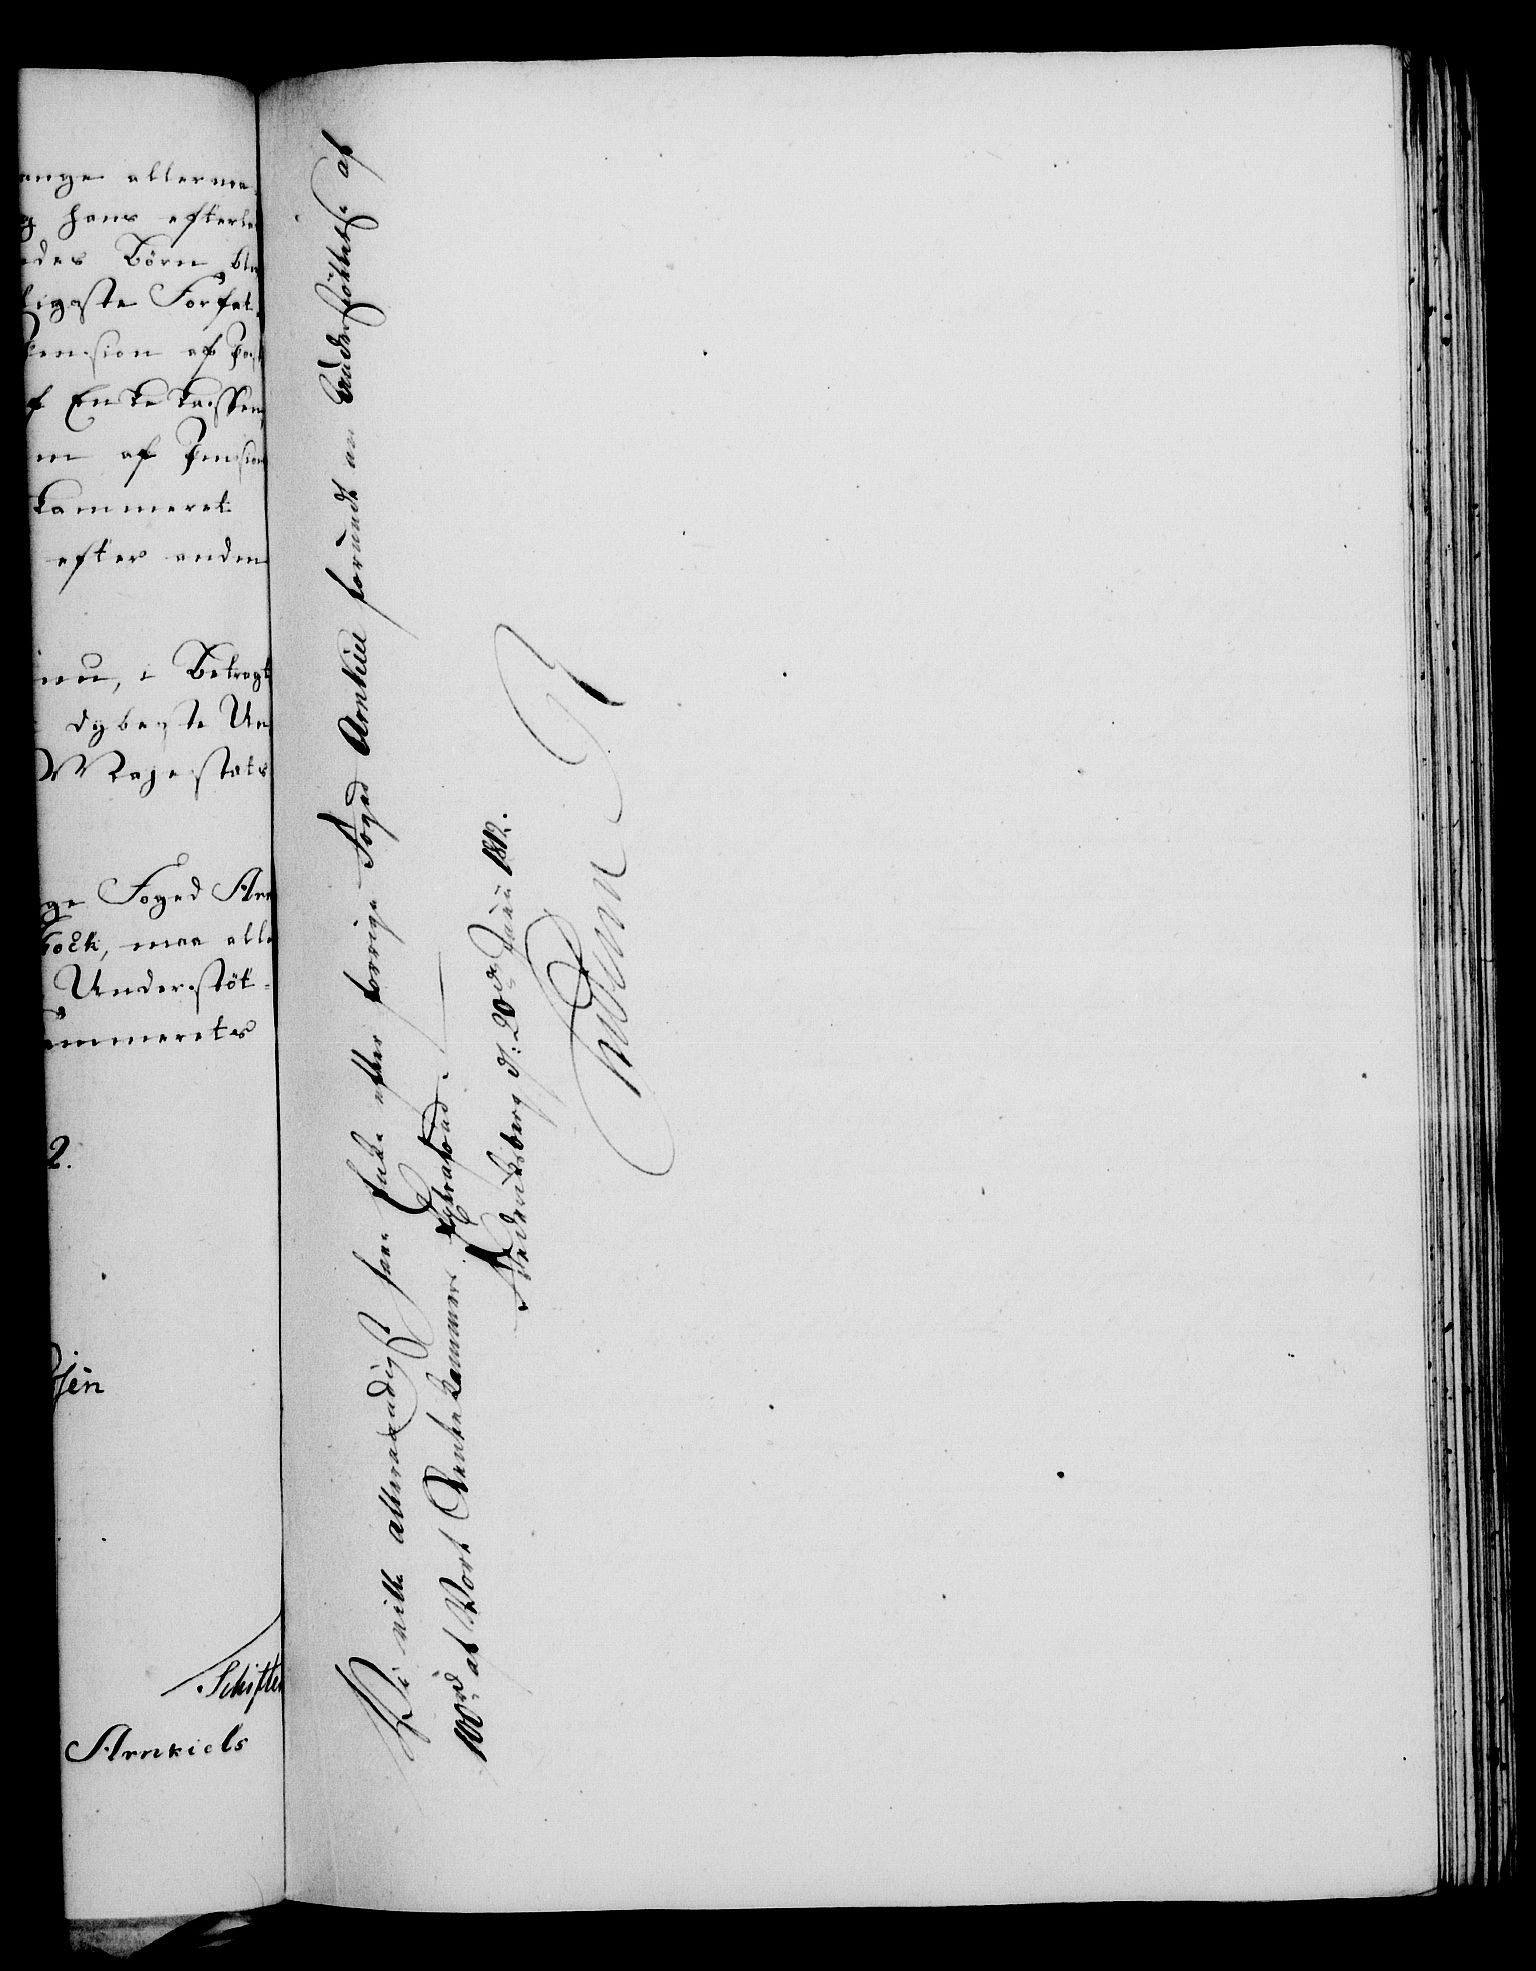 ange allerme-
hans efterle
des Börn ble
ligste Forfat-
Pension af Post
Enkekassen
m af Pension
kammeret
efter anden
nu, i Betragt
dybeste Un
Majestæts
ge Foged Arn
Fock, maa alle
Understöt-
ammerets
2.
sen
Schifter
Arnkiels
Vi ville allernaadigst have Enke efter forrige Foged Arnkiel forundt en Understöttelse af
100 rd af Vort Rentekammers Extrafond.
Frederiksberg d: 20de Janu 1812.
Frederik R